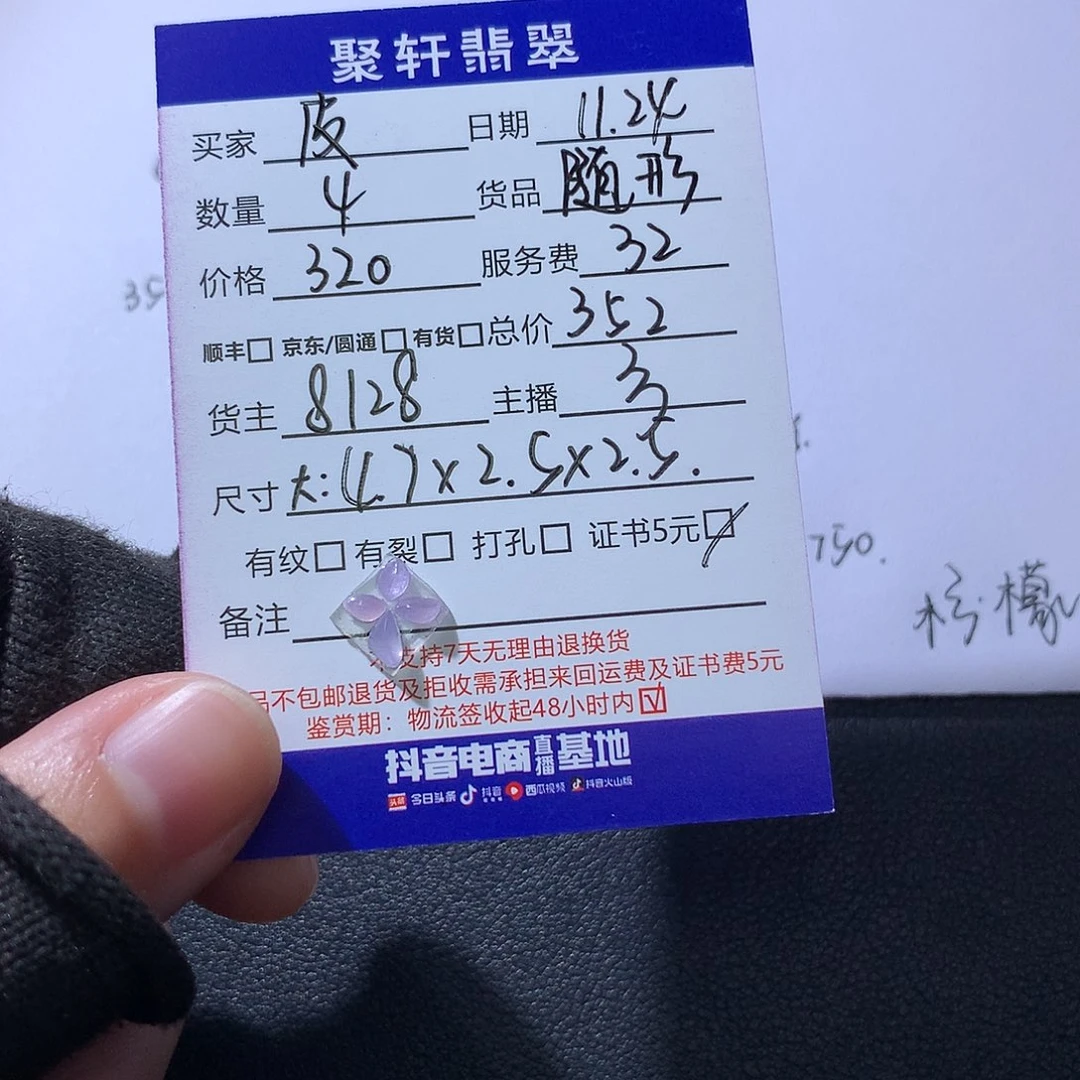 聚轩翡翠
买家 皮 日期 11.24
数量 4 货品 随形
价格 320 服务费 32
顺丰□ 京东/圆通□ 有货□ 总价 352
货主 8128 主播
尺寸 大:4.7×2.5×2.5.
有纹□ 有裂□ 打孔□ 证书5元☑
备注
支持7天无理由退换货
品不包邮退货及拒收需承担来回运费及证书费5元
鉴赏期：物流签收起48小时内☑
抖音电商直播基地
头条 今日头条 抖音 西瓜视频 抖音火山版
35
750.